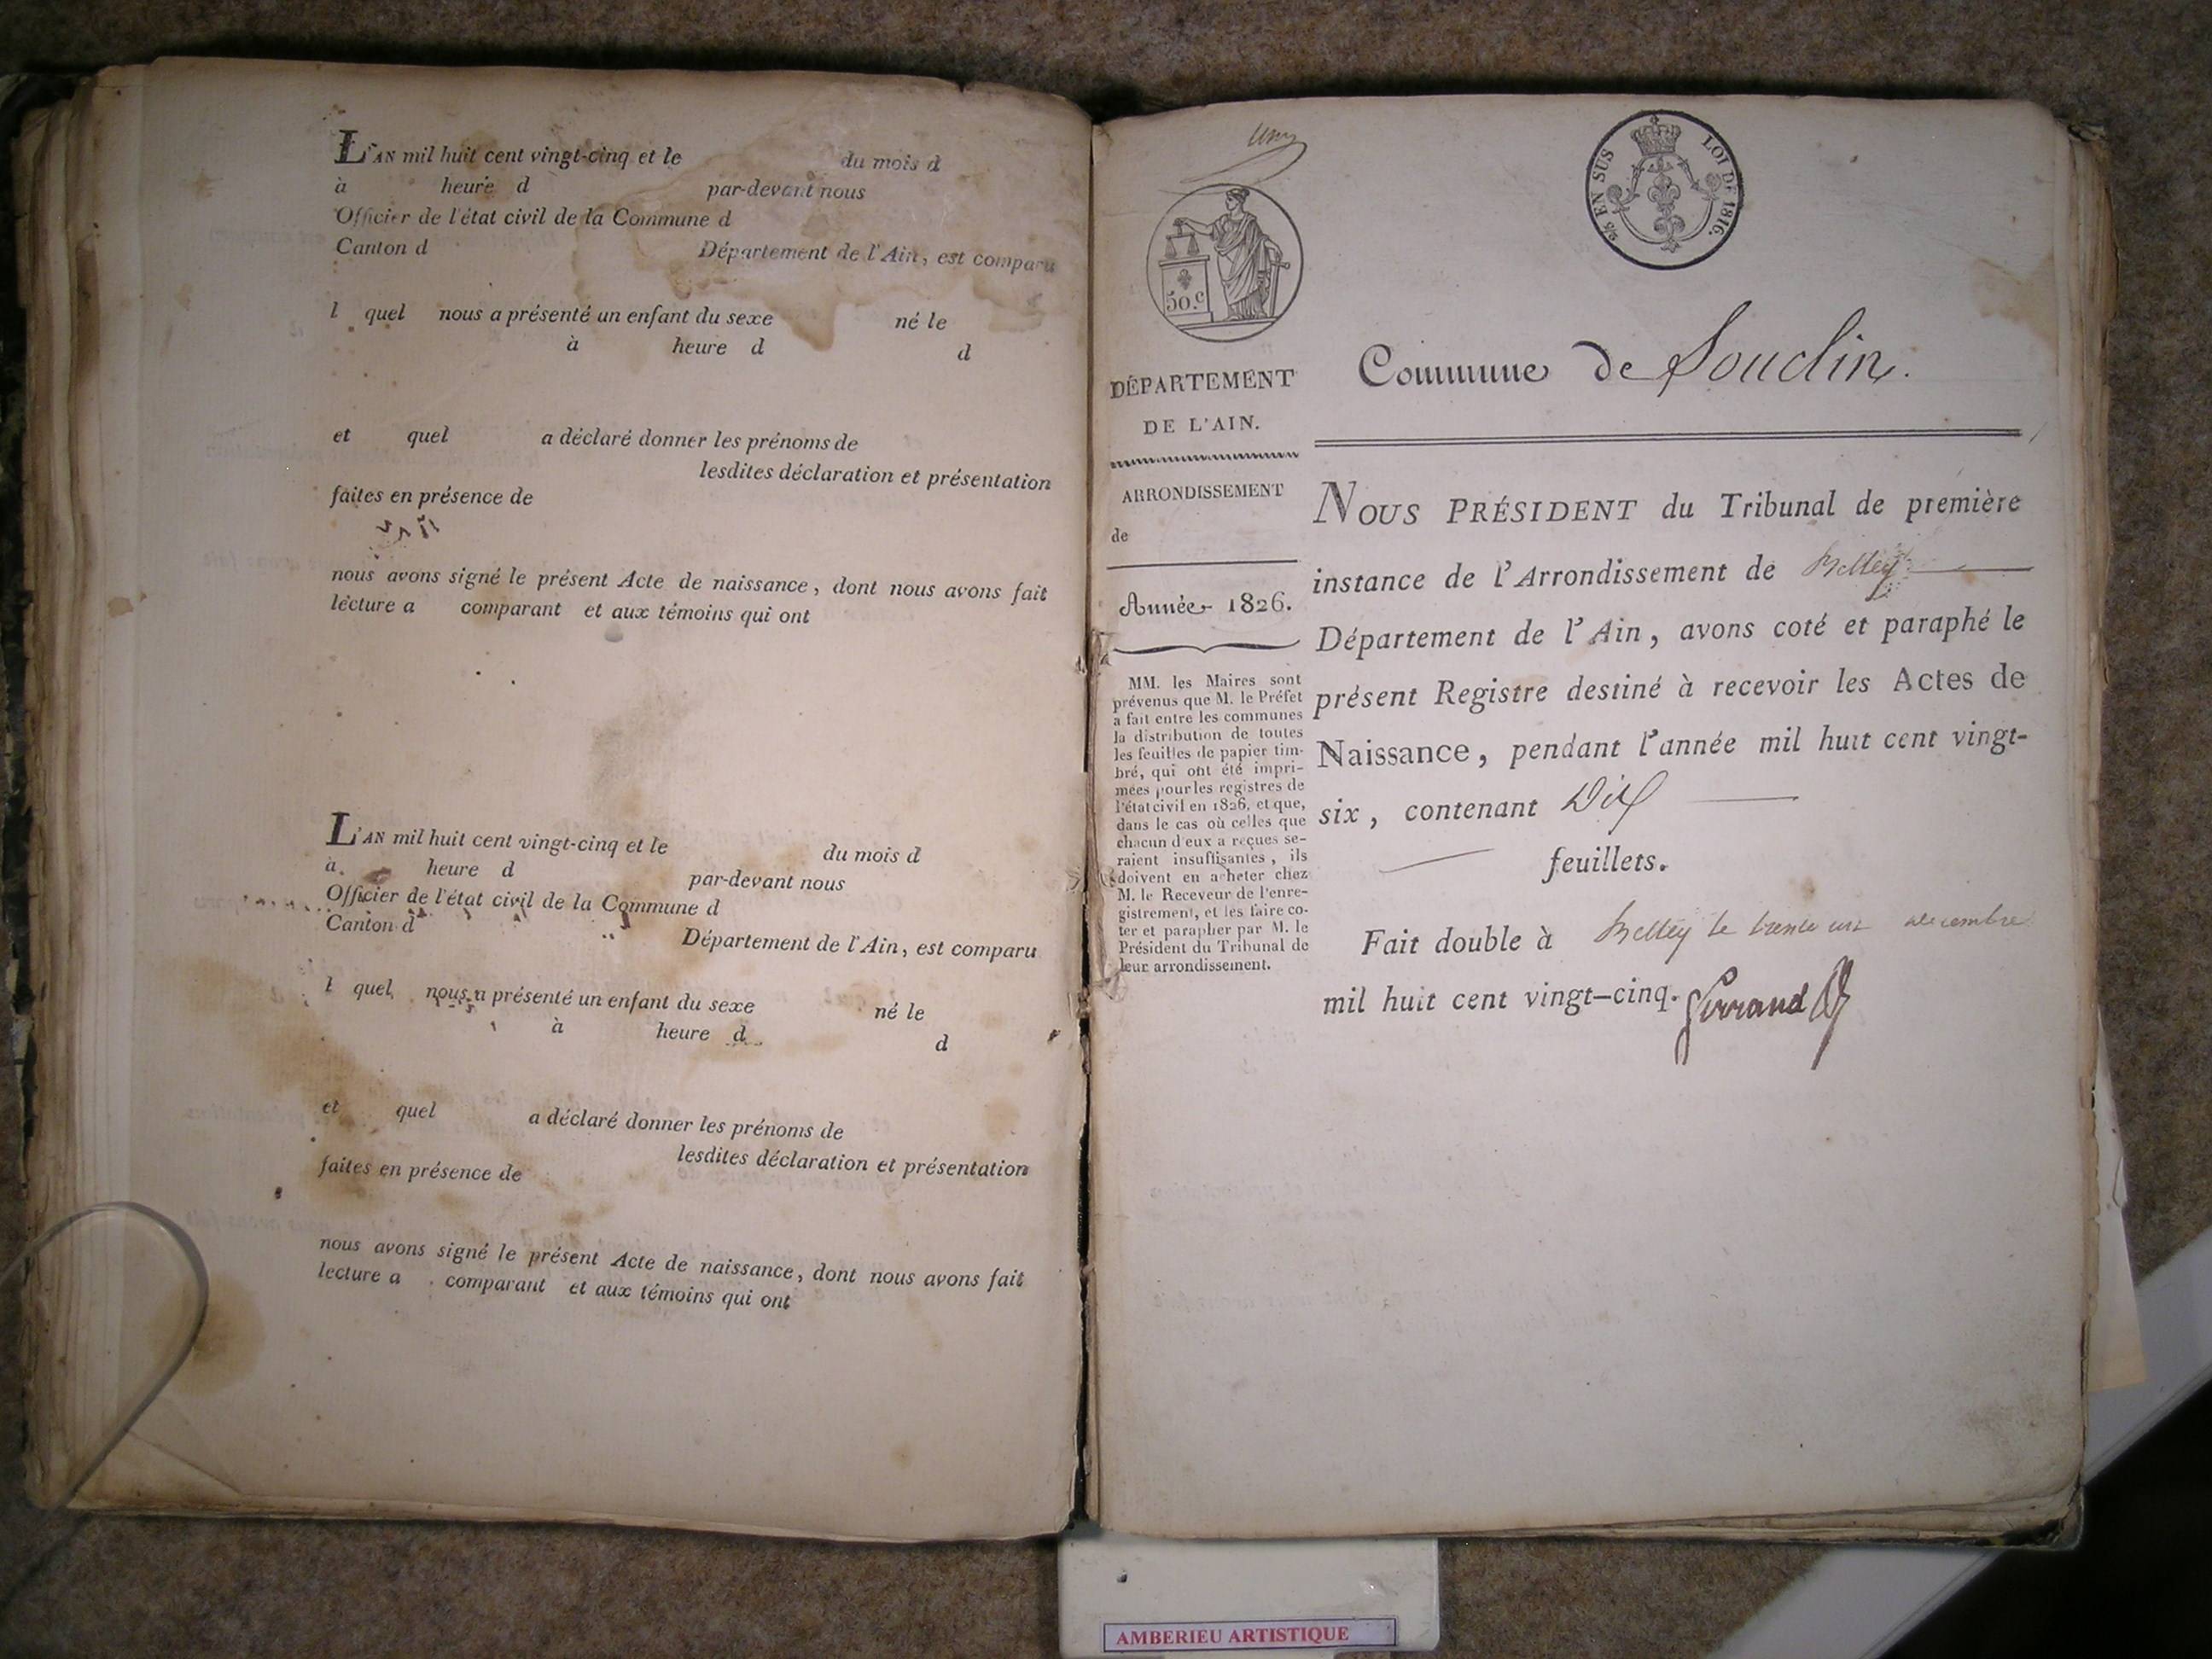 L'AN mil huit cent vingt-cinq et le du mois d
à heure d par-devant nous
Officier de l'état civil de la Commune d
Canton d Département de l'Ain, est comparu
l quel nous a présenté un enfant du sexe né le
à heure d d
et quel a déclaré donner les prénoms de
lesdites déclaration et présentation
faites en présence de
nous avons signé le présent Acte de naissance, dont nous avons fait
lecture a comparant et aux témoins qui ont
L'AN mil huit cent vingt-cinq et le du mois d
à heure d par-devant nous
Officier de l'état civil de la Commune d
Canton d Département de l'Ain, est comparu
l quel nous a présenté un enfant du sexe né le
à heure d d
et quel a déclaré donner les prénoms de
lesdites déclaration et présentation
faites en présence de
nous avons signé le présent Acte de naissance, dont nous avons fait
lecture a comparant et aux témoins qui ont
50.c
EN SUS LOI DE 1816.
DÉPARTEMENT
DE L'AIN.
ARRONDISSEMENT
de
Année 1826.
MM. les Maires sont
prévenus que M. le Préfet
a fait entre les communes
la distribution de toutes
les feuilles de papier tim-
bré, qui ont été impri-
mées pour les registres de
l'état civil en 1826, et que,
dans le cas où celles que
chacun d'eux a reçues se-
raient insuffisantes, ils
doivent en acheter chez
M. le Receveur de l'enre-
gistrement, et les faire co-
ter et parapher par M. le
Président du Tribunal de
leur arrondissement.
Commune de Souclin.
NOUS PRÉSIDENT du Tribunal de première
instance de l'Arrondissement de Belley
Département de l'Ain, avons coté et paraphé le
présent Registre destiné à recevoir les Actes de
Naissance, pendant l'année mil huit cent vingt-
six, contenant Dix
feuillets.
Fait double à Belley le trente un decembre
mil huit cent vingt-cinq.
AMBERIEU ARTISTIQUE